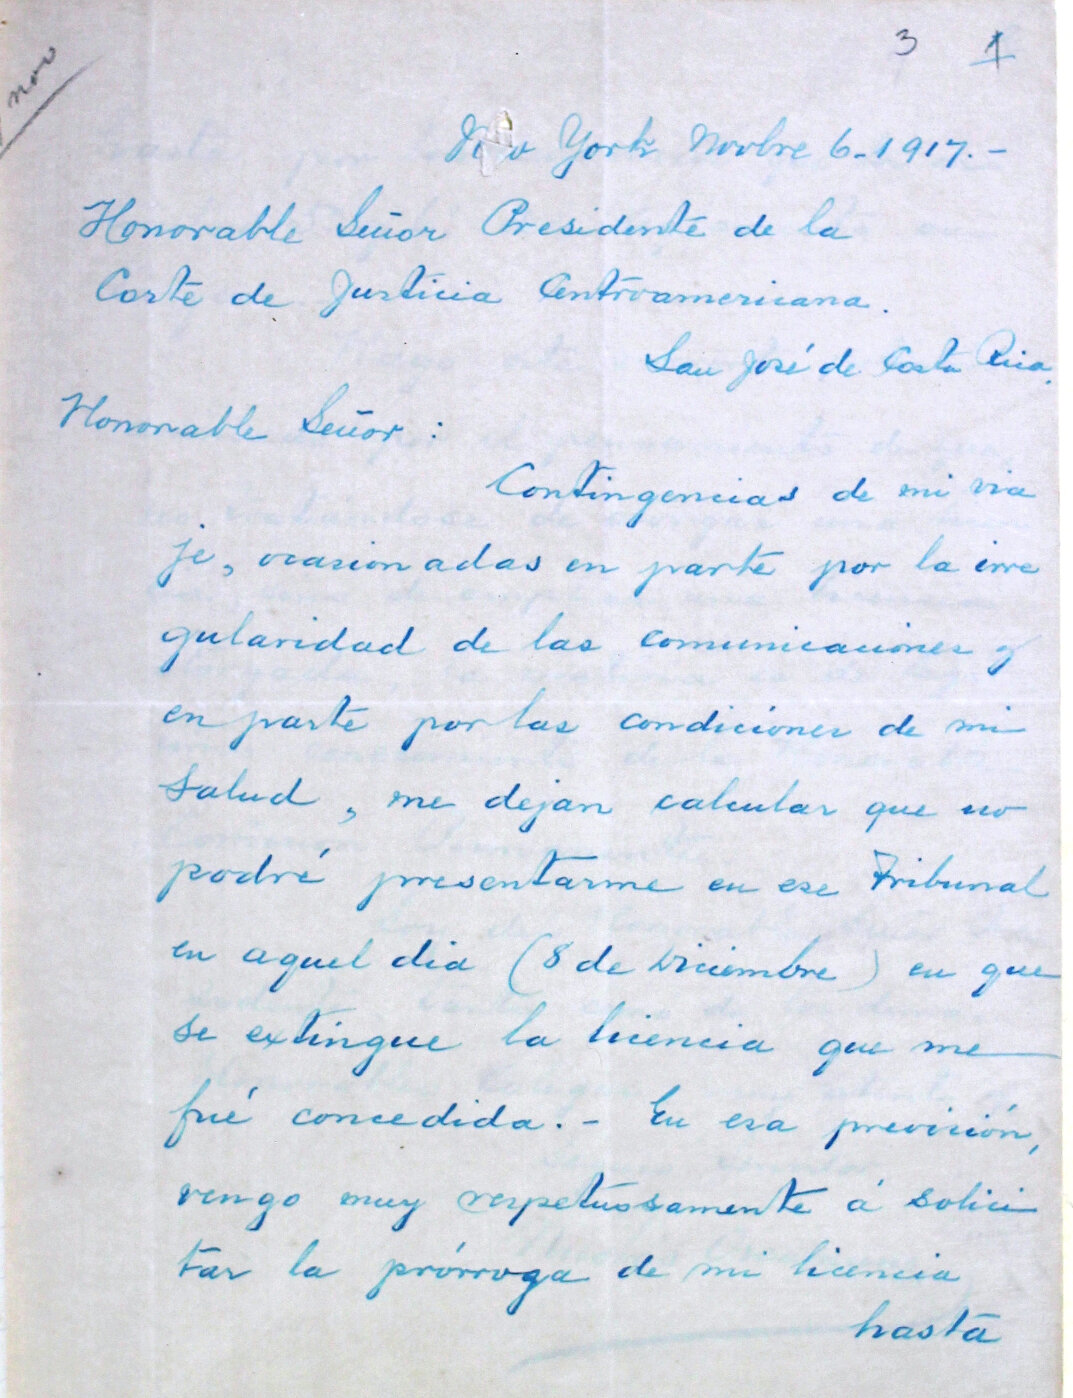 3 1
nov
New York Novbre 6-1917.-
Honorable Señor Presidente de la
Corte de Justicia Centroamericana.
San José de Costa Rica.
Honorable Señor :
Contingencias de mi via
je, ocasionadas en parte por la irre
gularidad de las comunicaciones y
en parte por las condiciones de mi
salud, me dejan calcular que no
podré presentarme en ese Tribunal
en aquel dia (8 de Diciembre) en que
se extingue la licencia que me
fué concedida.- En esa previsión,
vengo muy respetuosamente á solici
tar la prórroga de mi licencia
hasta